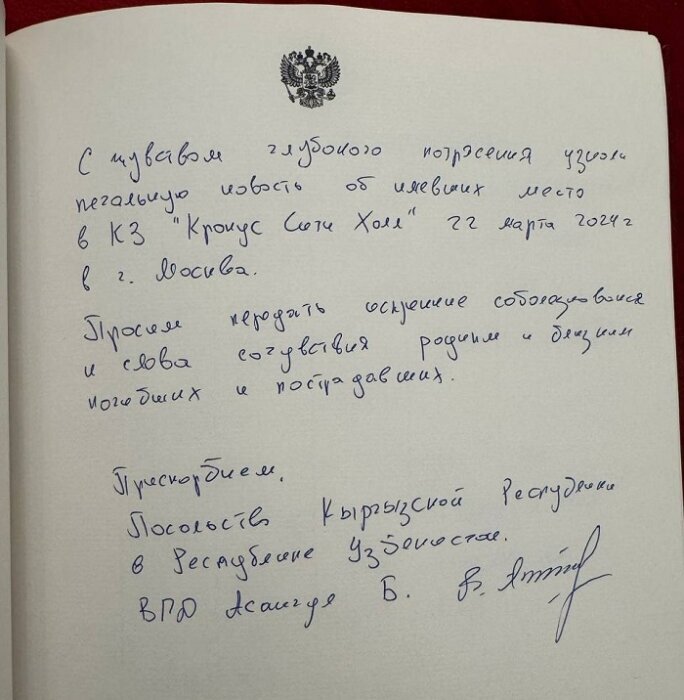 С чувством глубокого потрясения узнали
печальную новость об имевших место
в КЗ "Крокус Сити Холл" 22 марта 2024 г
в г. Москва.
Просим передать искренние соболезнования
и слова сочувствия родным и близким
погибших и пострадавших.
Прискорбием.
Посольство Кыргызской Республики
в Республике Узбекистан.
ВПД Б.